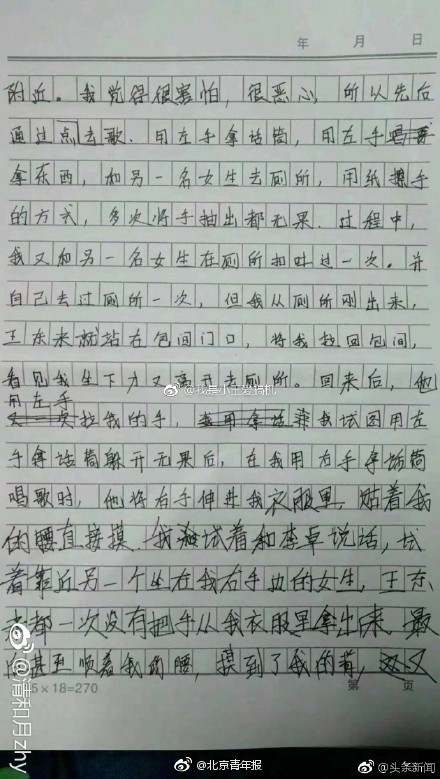 年 月 日
附近。我觉得很害怕，很恶心，所以先后
通过点去歌、用左手拿话筒，用左手
拿东西，和另一名女生去厕所，用纸擦手
的方式，多次将手抽出都无果。过程中，
我又和另一名女生在厕所扣吐过一次。并
自己去过厕所一次，但我从厕所刚出来，
王东来就站在包间门口，将我拉回包间，
看见我坐下才又离开去厕所。回来后，他
用左手
又一次拉我的手，我试图用左
手拿话筒躲开无果后，在我用右手拿话筒
唱歌时，他将右手伸进我衣服里，贴着我
的腰直接摸。我试着和李卓说话，试
着靠近另一个坐在我右手边的女生，王东
来都一次没有把手从我衣服里拿出来，最
后甚至顺着我的腰，摸到了我的背，又
15×18=270 第 页
@清和月zhy
@北京青年报
@头条新闻